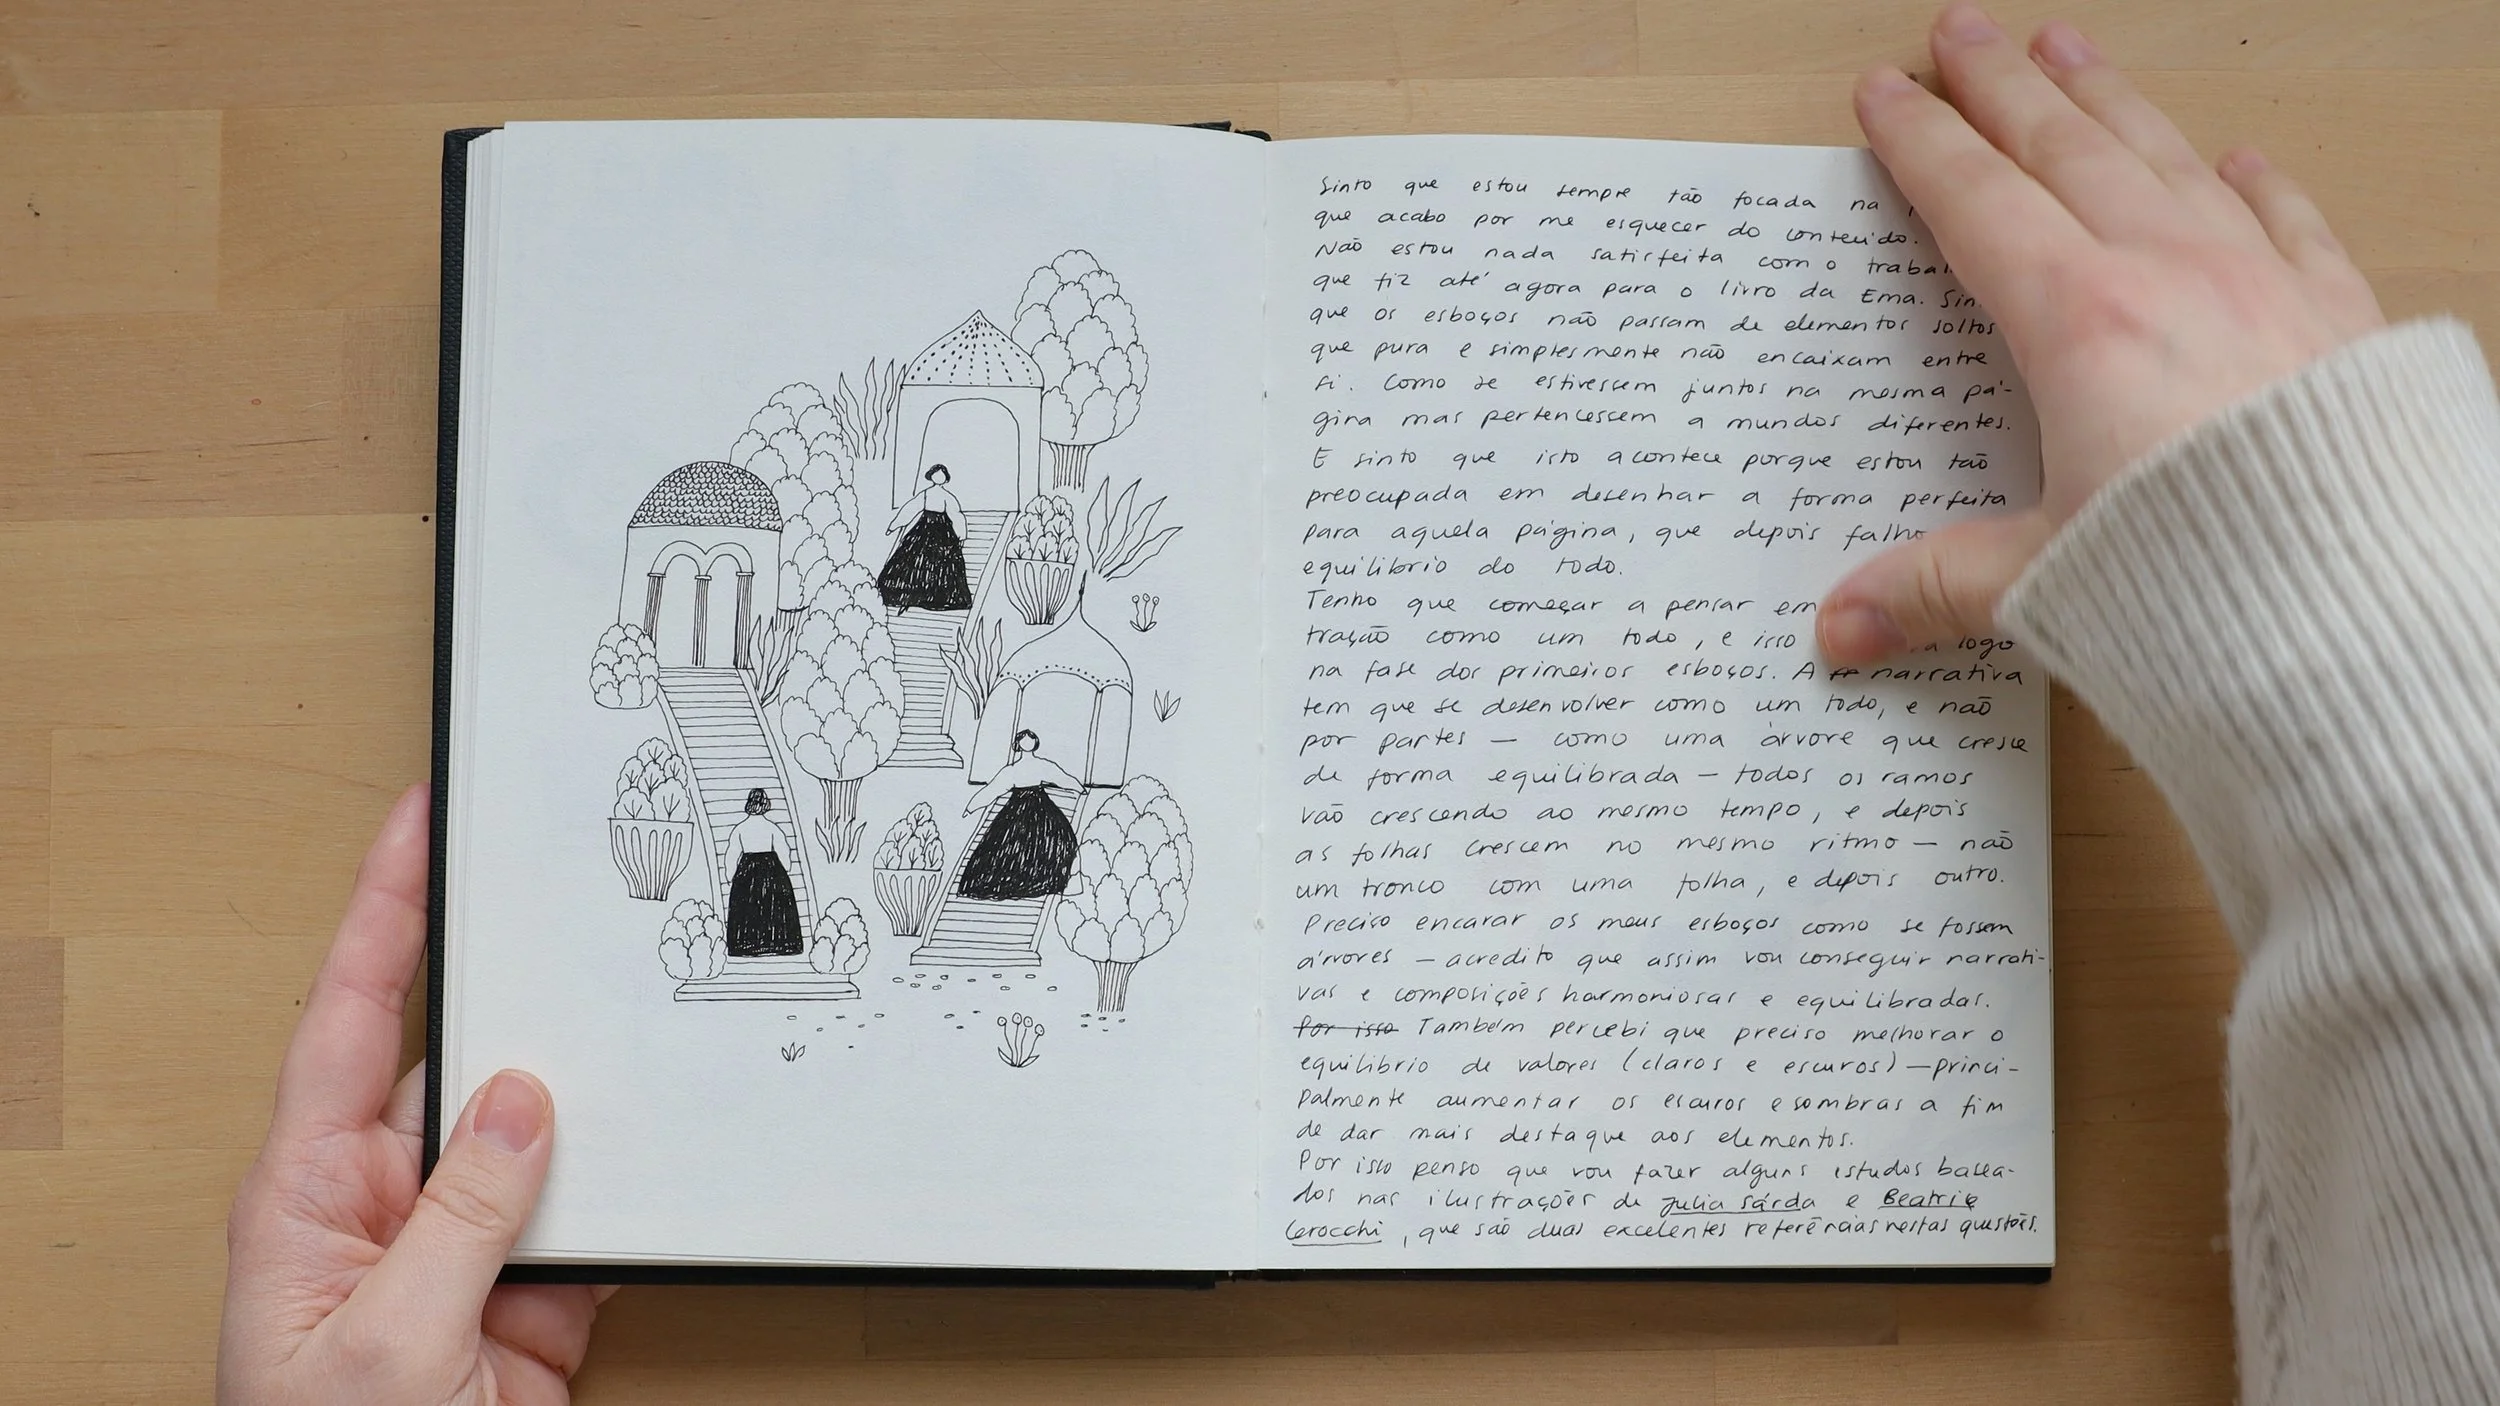 Sinto que estou sempre tão focada na
que acabo por me esquecer do conteúdo.
Não estou nada satisfeita com o
que fiz até agora para o livro da Ema.
que os esboços não passam de elementos soltos
que pura e simplesmente não encaixam entre
si. Como se estivessem juntos na mesma pá-
gina mas pertencessem a mundos diferentes.
E sinto que isto acontece porque estou tão
preocupada em desenhar a forma perfeita
para aquela página, que depois falho
equilíbrio do todo.
Tenho que começar a pensar em
tração como um todo, e isso logo
na fase dos primeiros esboços. A narrativa
tem que se desenvolver como um todo, e não
por partes — como uma árvore que cresce
de forma equilibrada — todos os ramos
vão crescendo ao mesmo tempo, e depois
as folhas crescem no mesmo ritmo — não
um tronco com uma folha, e depois outro.
Preciso encarar os meus esboços como se fossem
árvores — acredito que assim vou conseguir narrati-
vas e composições harmoniosas e equilibradas.
Por isso Também percebi que preciso melhorar o
equilíbrio de valores (claros e escuros) — princi-
palmente aumentar os escuros e sombras a fim
de dar mais destaque aos elementos.
Por isso penso que vou fazer alguns estudos basea-
dos nas ilustrações de Julia Sárda e Beatriz
Cerocchi, que são duas excelentes referências nestas questões.